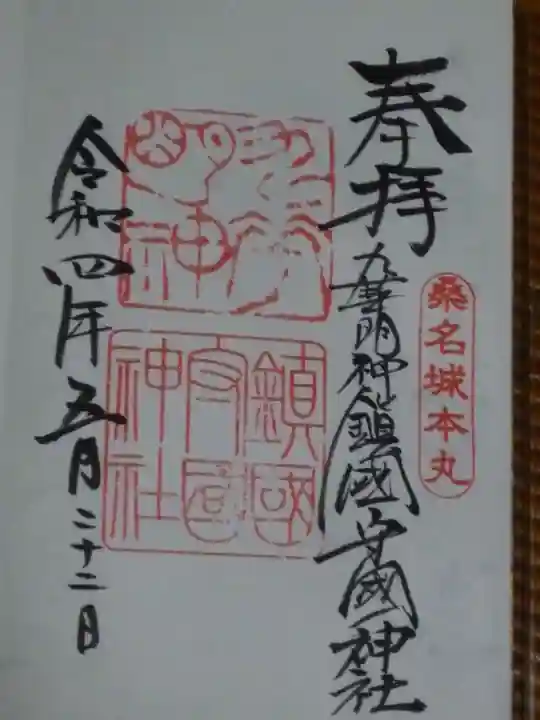 桑名城本丸
奉拝
九華明神 鎮國守國神社
鎮國
守國
神社
令和四年五月二十二日